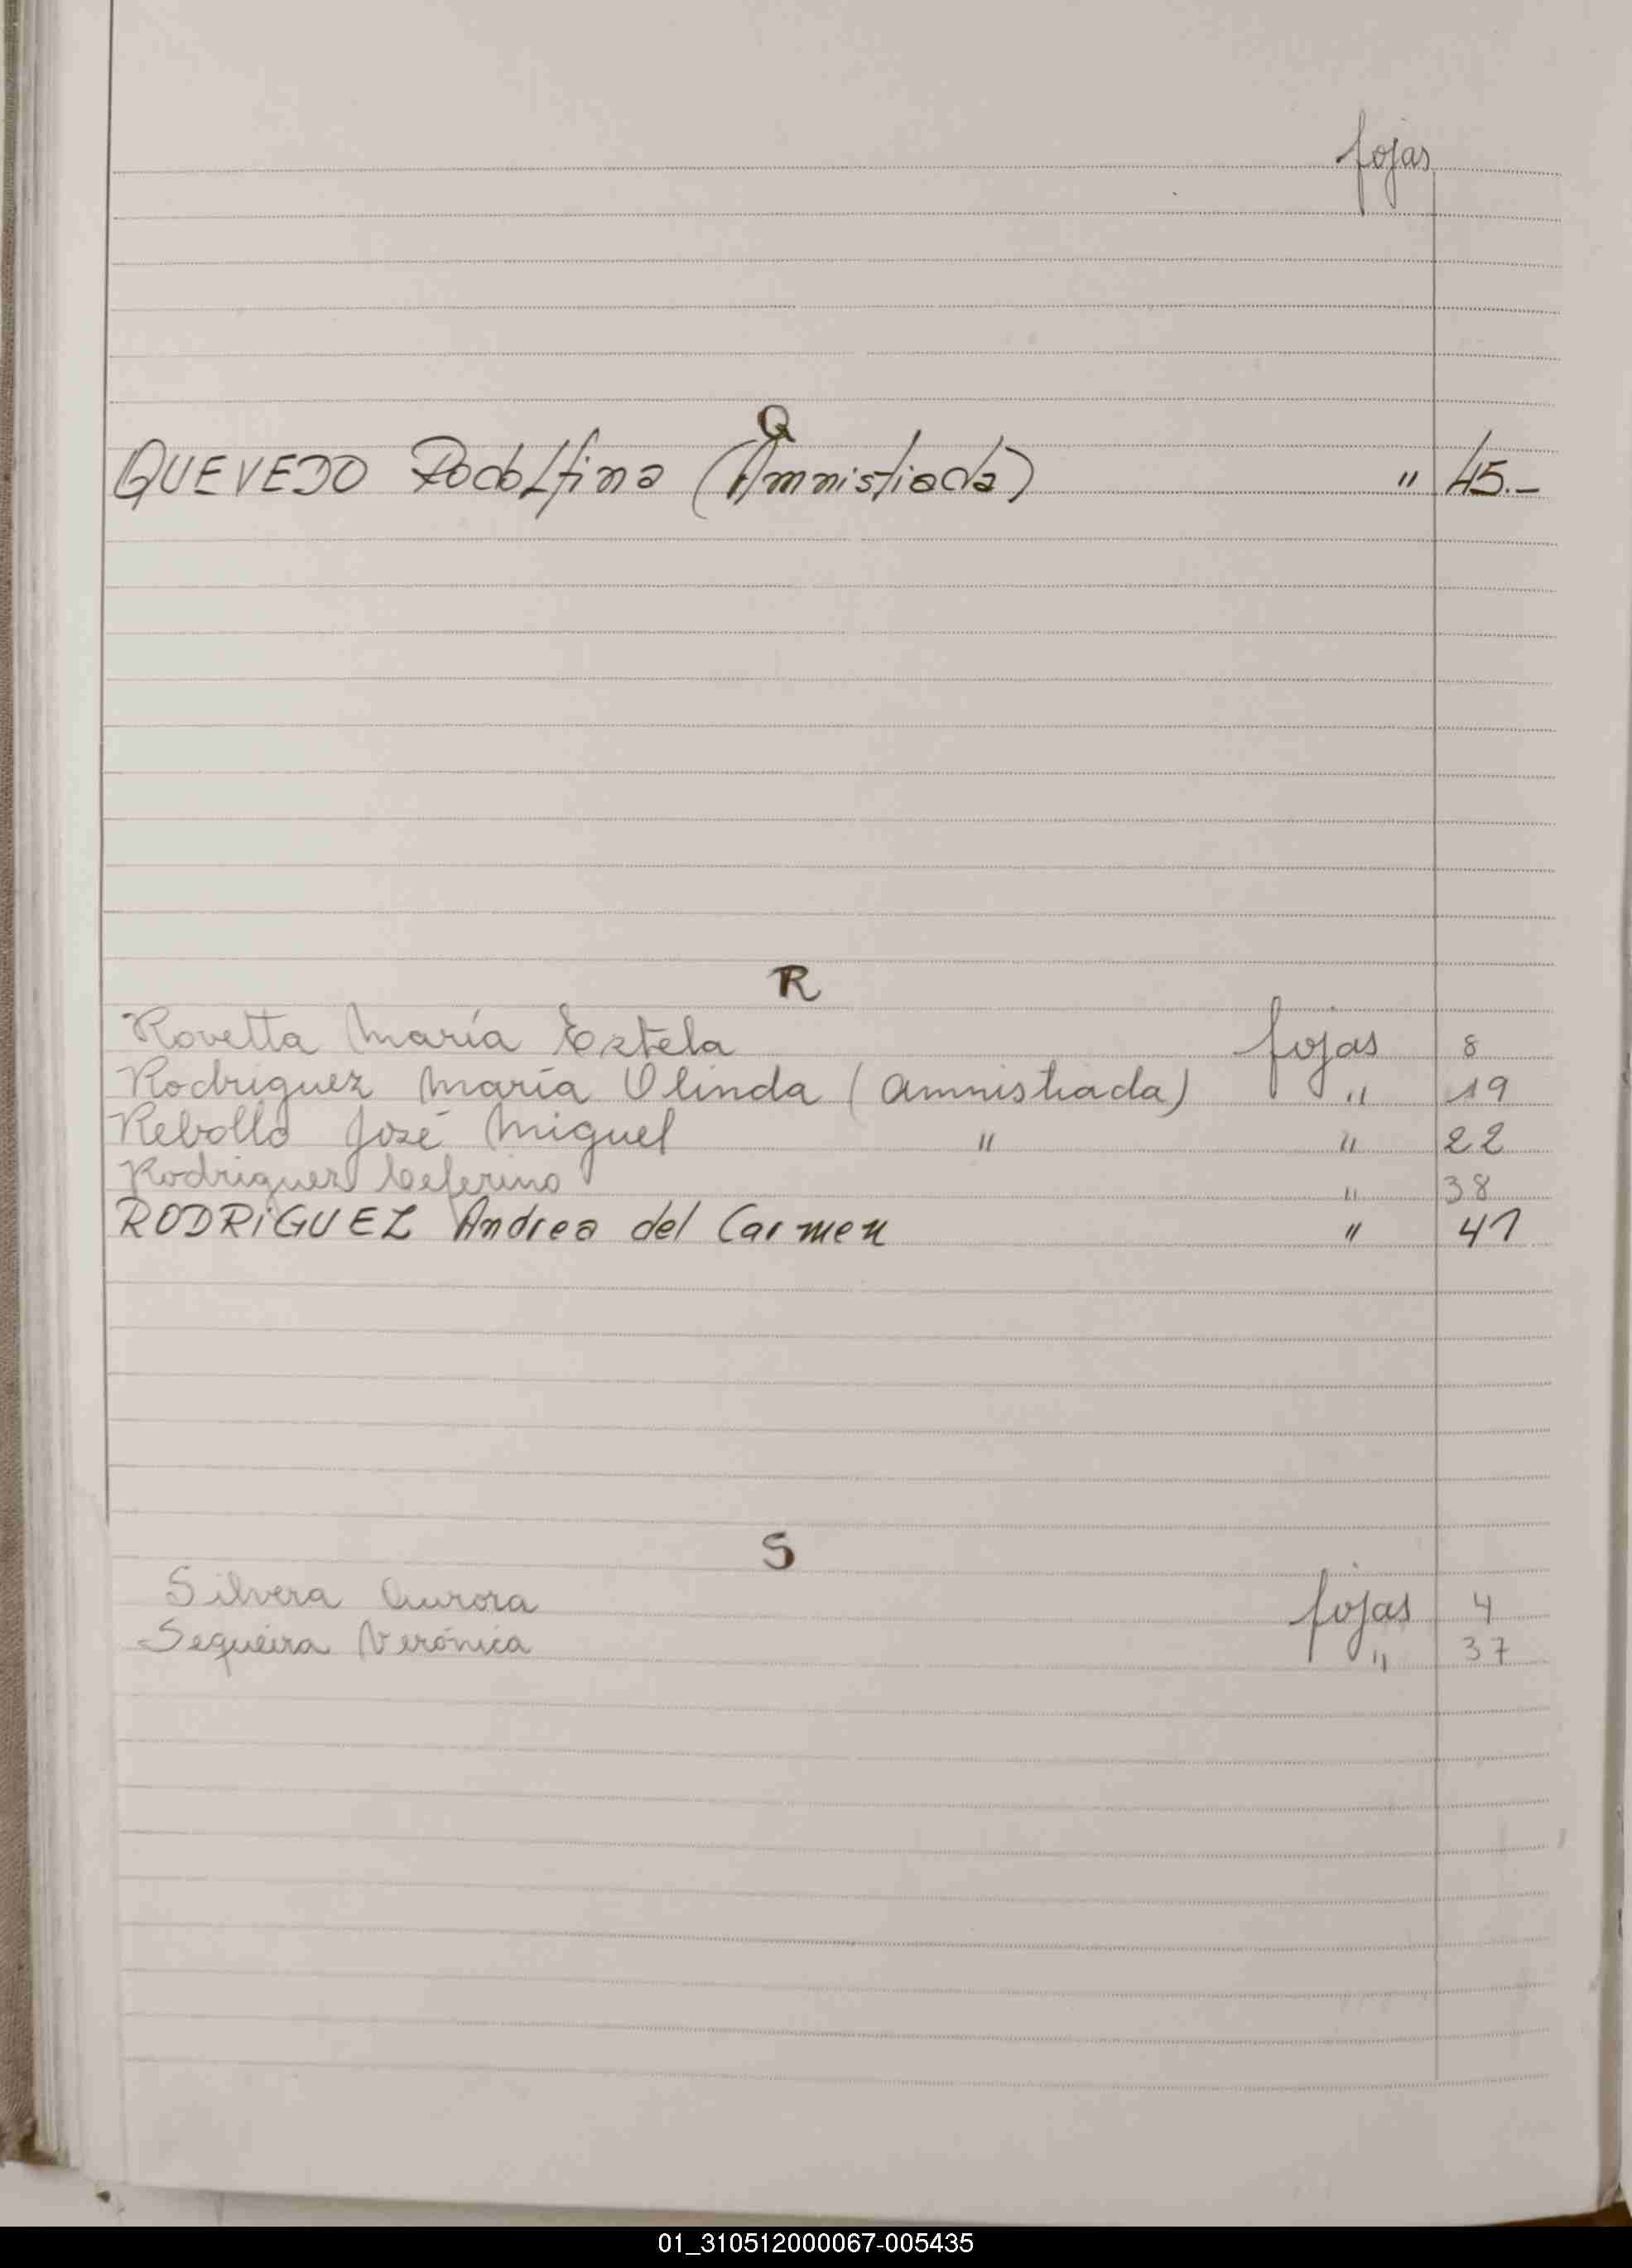 fojas
Q
QUEVEDO Rodolfina (Amnistiada) " 45.-
R
Rovetta María Estela fojas 8
Rodriguez María Olinda (Amnistiada) " 19
Rebollo José Miguel " " 22
Rodriguez Ceferino " 38
RODRiGUEZ Andrea del Carmen " 41
S
Silvera Aurora fojas 4
Sequeira Verónica " 37
01_310512000067-005435